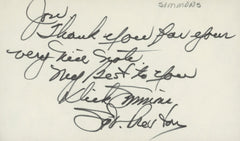 SIMMONS
Jon
Thank you for your
very nice note
My best to you
Dick Simmons
Sgt. Preston